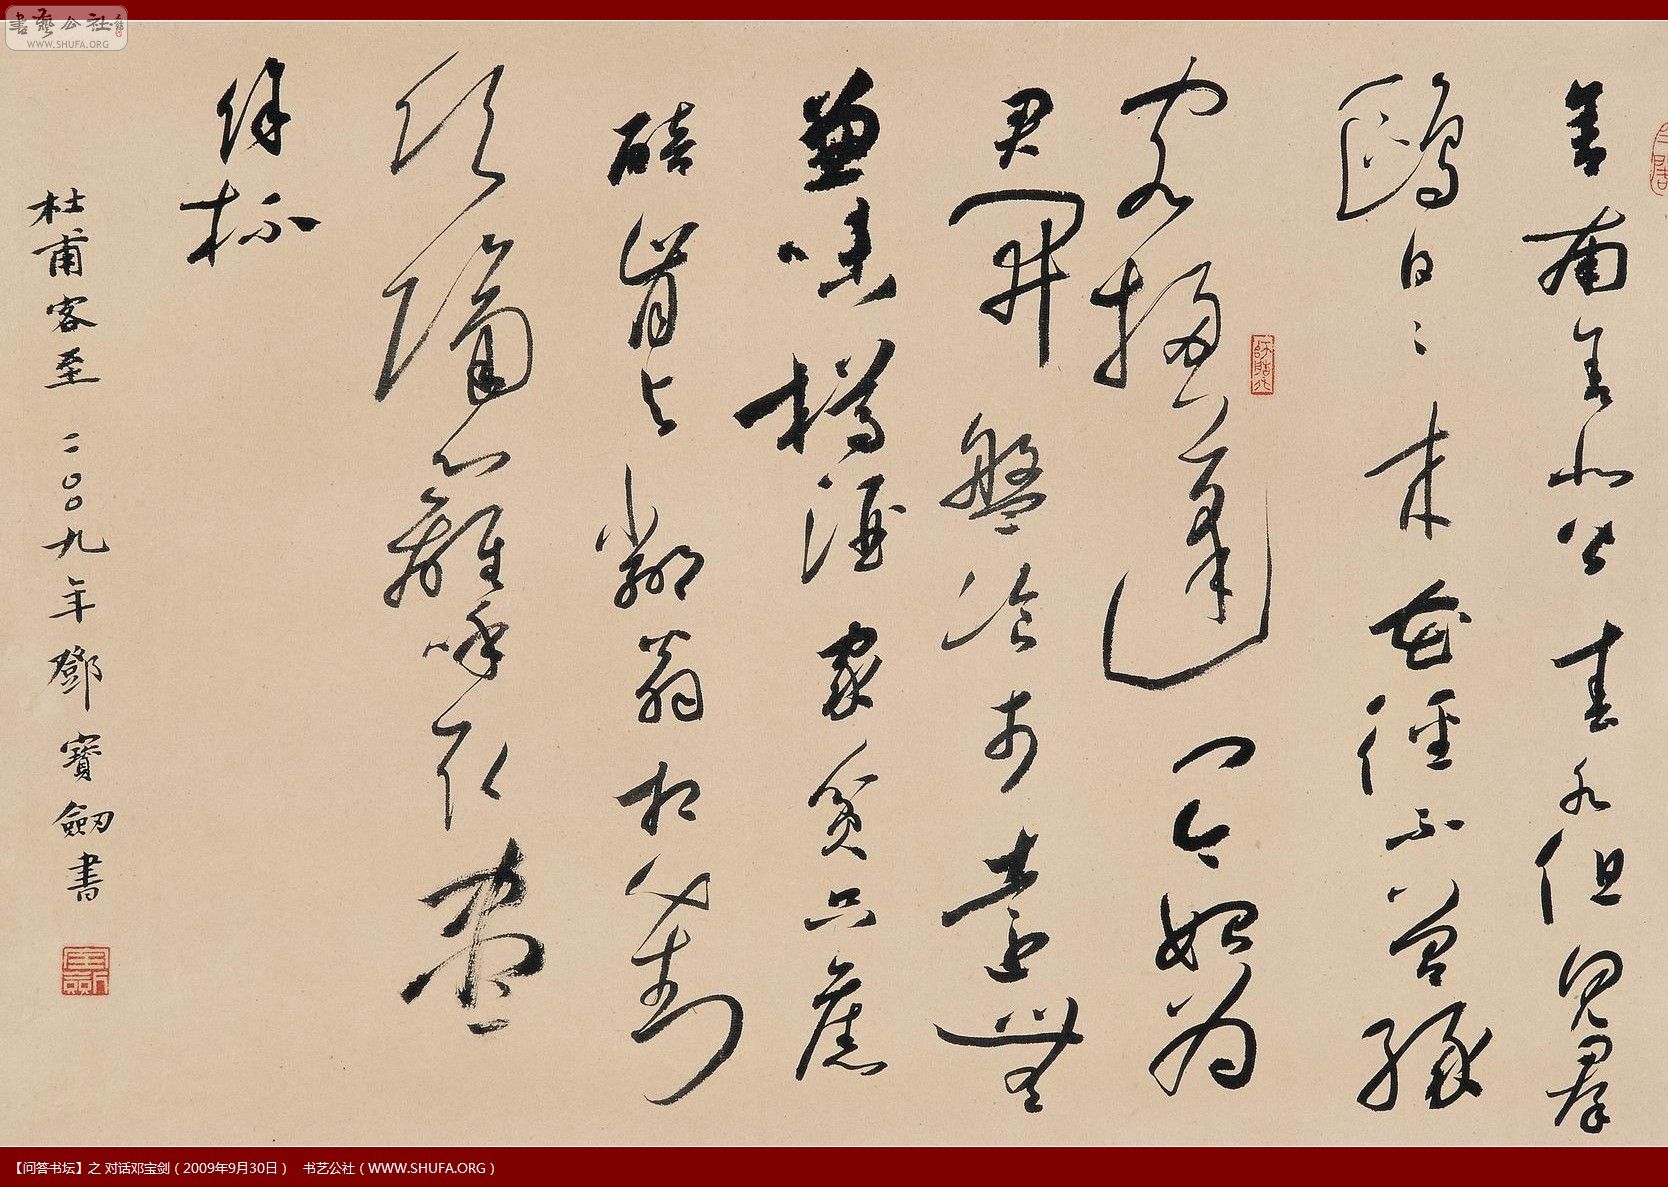 舍南舍北皆春水但見羣
鷗日〻來花徑不曾緣
客掃蓬門今始為
君開盤飡市遠無
兼味樽酒家貧只舊
醅肯與鄰翁相對
飲隔籬呼取盡
餘杯
杜甫客至 二〇〇九年 鄧寶劍書
書藝公社
WWW.SHUFA.ORG
【问答书坛】之 对话邓宝剑（2009年9月30日） 书艺公社（WWW.SHUFA.ORG）